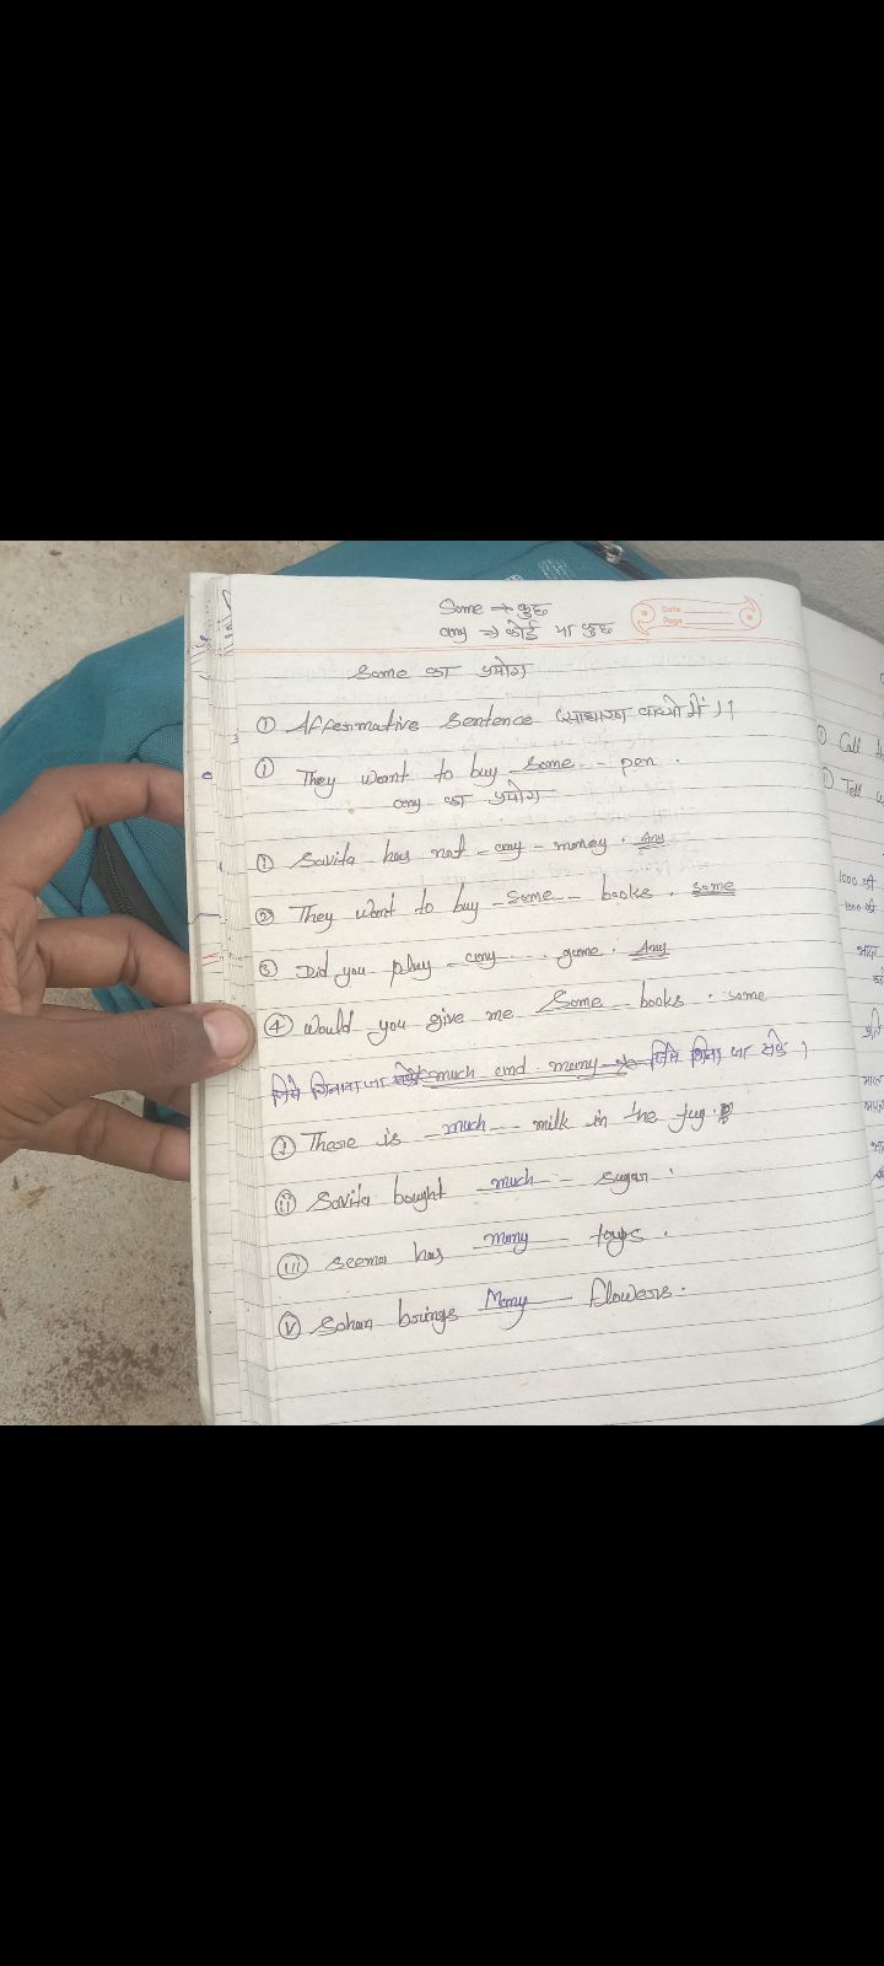 Some → कुछ
any → कोई या कुछ
Date
Page
Some का प्रयोग
① Affermative Sentence (साधारण वाक्यो में)
① They want to buy some -- pen .
any का प्रयोग
① Savita has not - any - money . Any
② They want to buy - some - books . some
③ Did you play - any - . . game . Any
④ Would you give me Some books . some
जिसे जा much and many जिसे गिना जा सके ।
① There is - much -- milk in the jug .
ii Savita bought much - sugar .
iii Seema has many toys .
V Sohan brings Many flowers .
① Call
① Tell
1000 की
1000 की